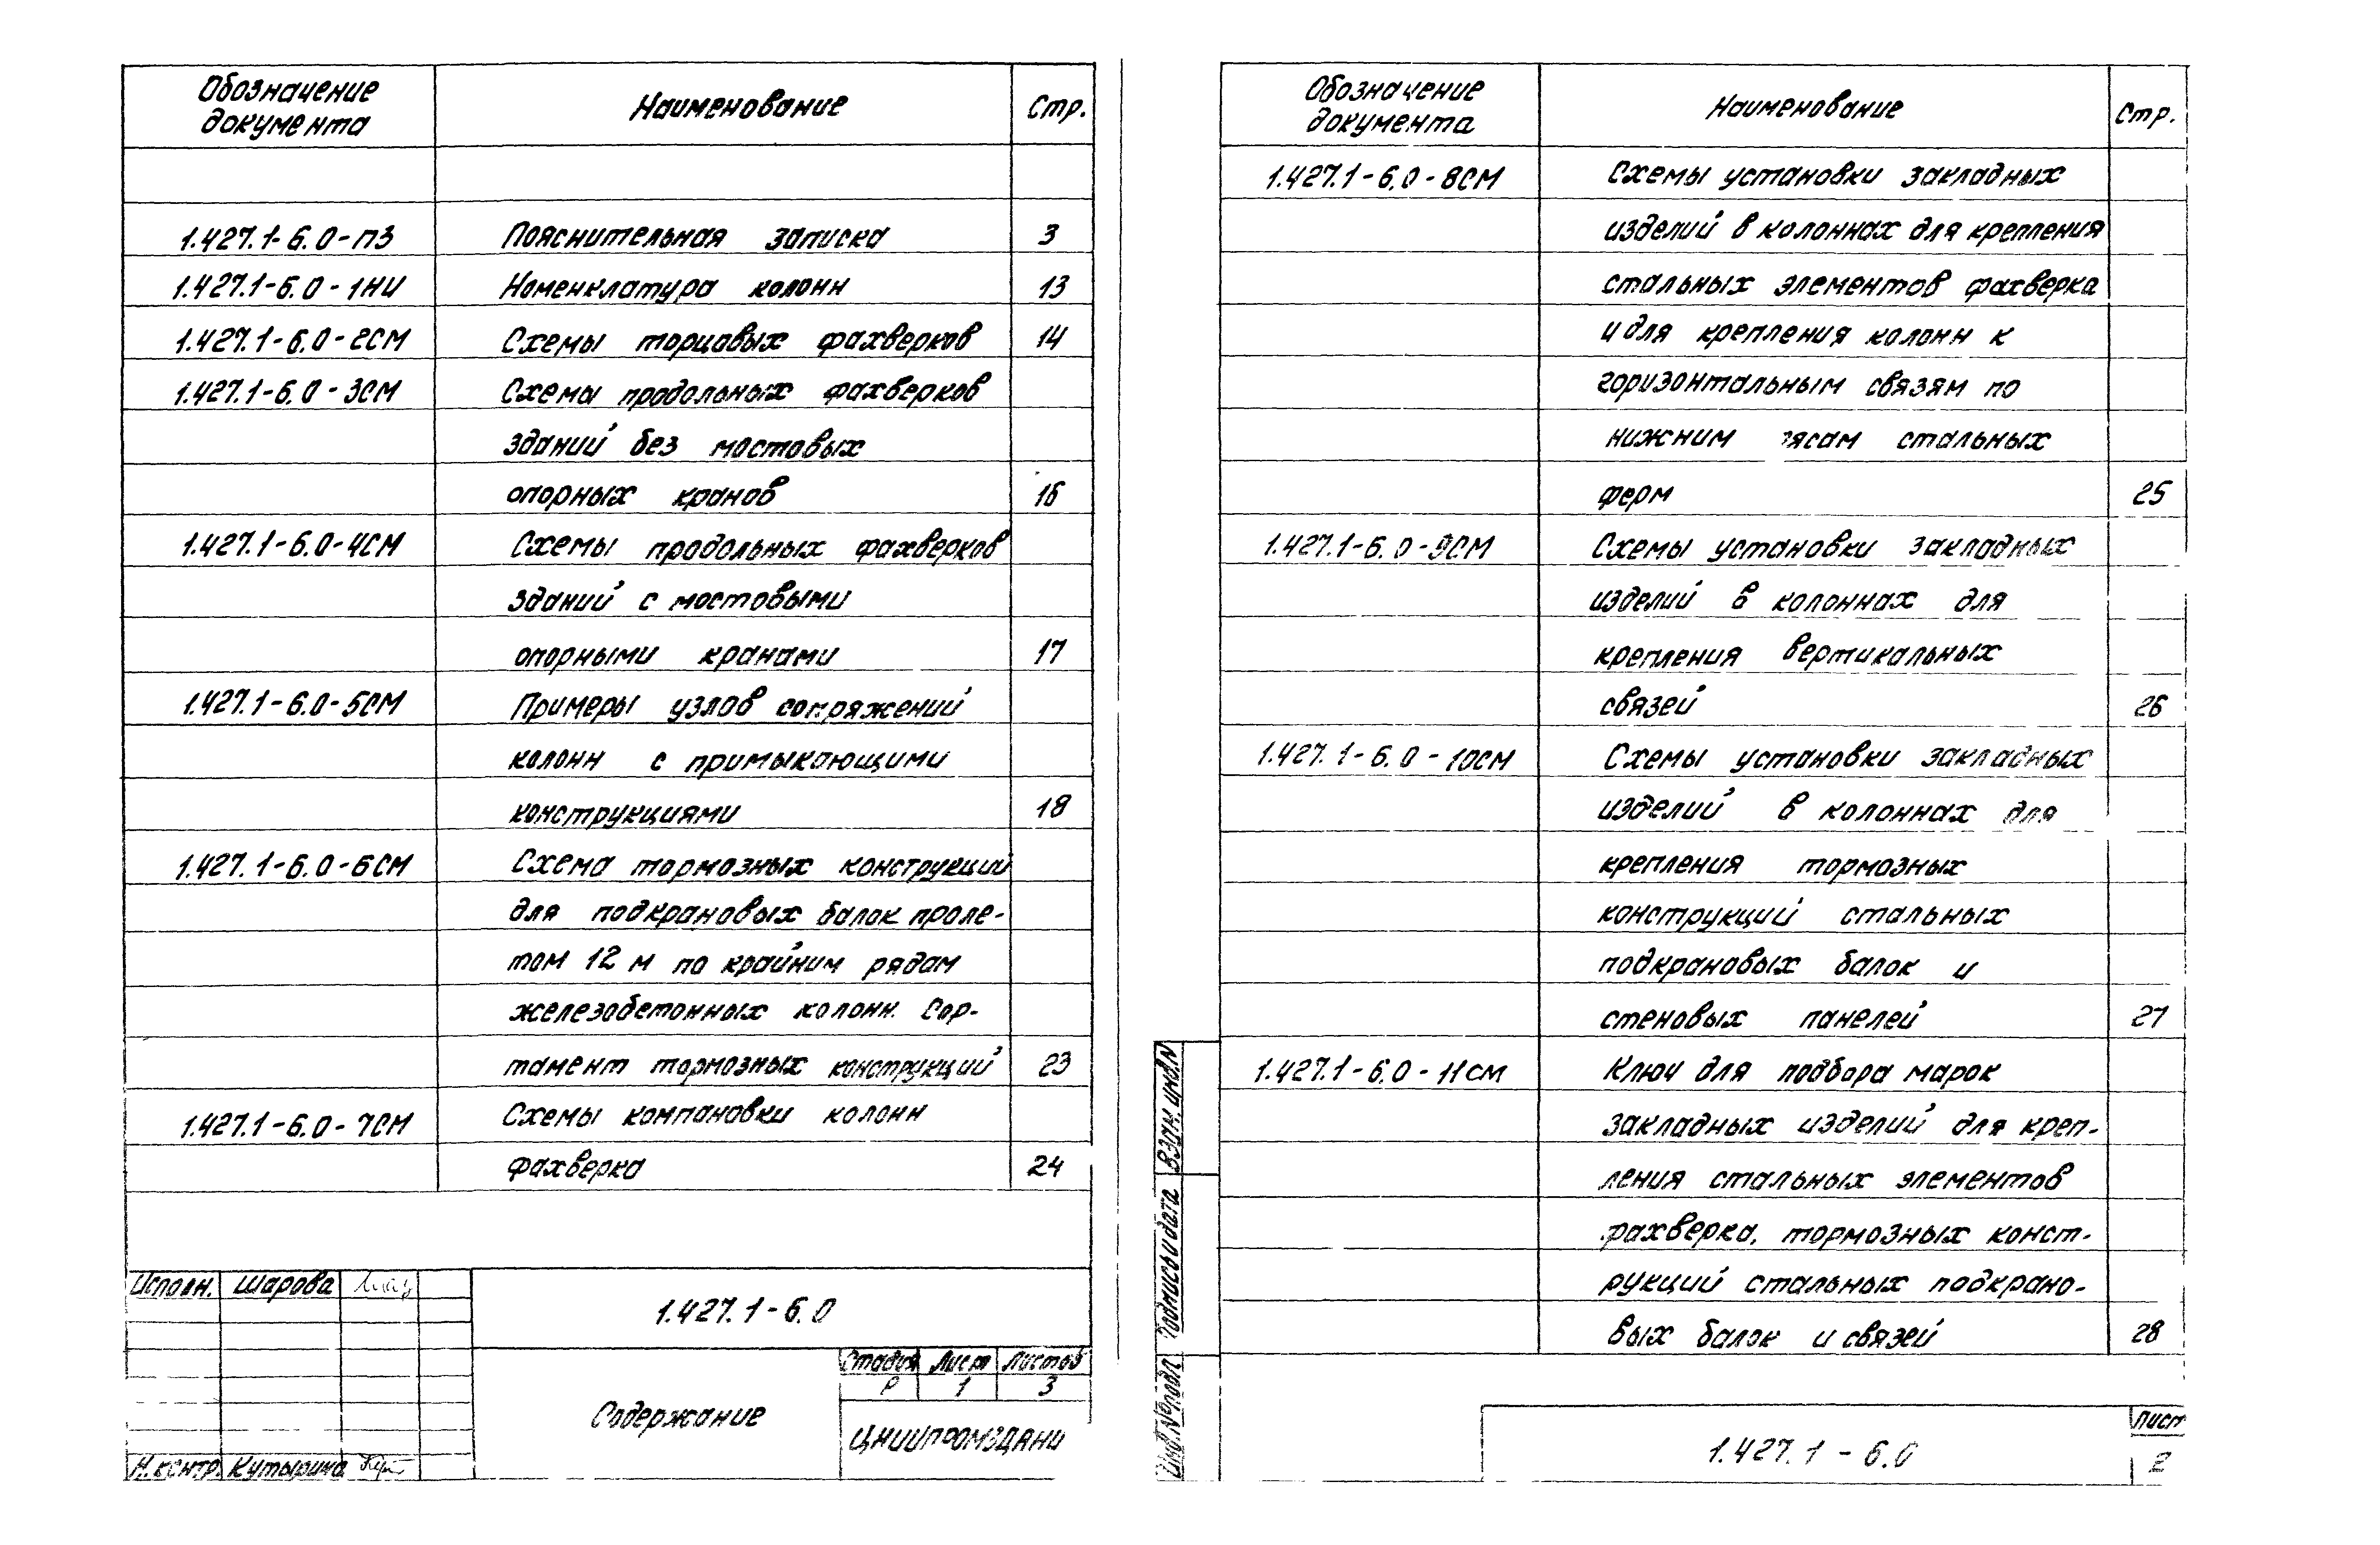 Обозначение документа Наименование Стр.
1.427.1-6.0-ПЗ Пояснительная записка 3
1.427.1-6.0-1НИ Номенклатура колонн 13
1.427.1-6.0-2СМ Схемы торцовых фахверков 14
1.427.1-6.0-3СМ Схемы продольных фахверков
зданий без мостовых
опорных кранов 16
1.427.1-6.0-4СМ Схемы продольных фахверков
зданий с мостовыми
опорными кранами 17
1.427.1-6.0-5СМ Примеры узлов сопряжений
колонн с примыкающими
конструкциями 18
1.427.1-6.0-6СМ Схема тормозных конструкций
для подкрановых балок проле-
том 12 м по крайним рядам
железобетонных колонн. Сор-
тамент тормозных конструкций 23
1.427.1-6.0-7СМ Схемы компановки колонн
фахверка 24
Исполн. Шарова
1.427.1-6.0
Стадия Лист Листов
Р 1 3
Содержание
ЦНИИПРОМЗДАНИ
Н.контр. Кутырина
Обозначение документа Наименование Стр.
1.427.1-6.0-8СМ Схемы установки закладных
изделий в колоннах для крепления
стальных элементов фахверка
и для крепления колонн к
горизонтальным связям по
нижним ясам стальных
ферм 25
1.427.1-6.0-9СМ Схемы установки закладных
изделий в колоннах для
крепления вертикальных
связей 26
1.427.1-6.0-10СМ Схемы установки закладных
изделий в колоннах для
крепления тормозных
конструкций стальных
подкрановых балок и
стеновых панелей 27
1.427.1-6.0-11СМ Ключ для подбора марок
закладных изделий для креп-
ления стальных элементов
фахверка, тормозных конст-
рукций стальных подкрано-
вых балок и связей 28
Взам. инв.N
Подпись и дата
Инв.№ подл
1.427.1-6.0
Лист
2